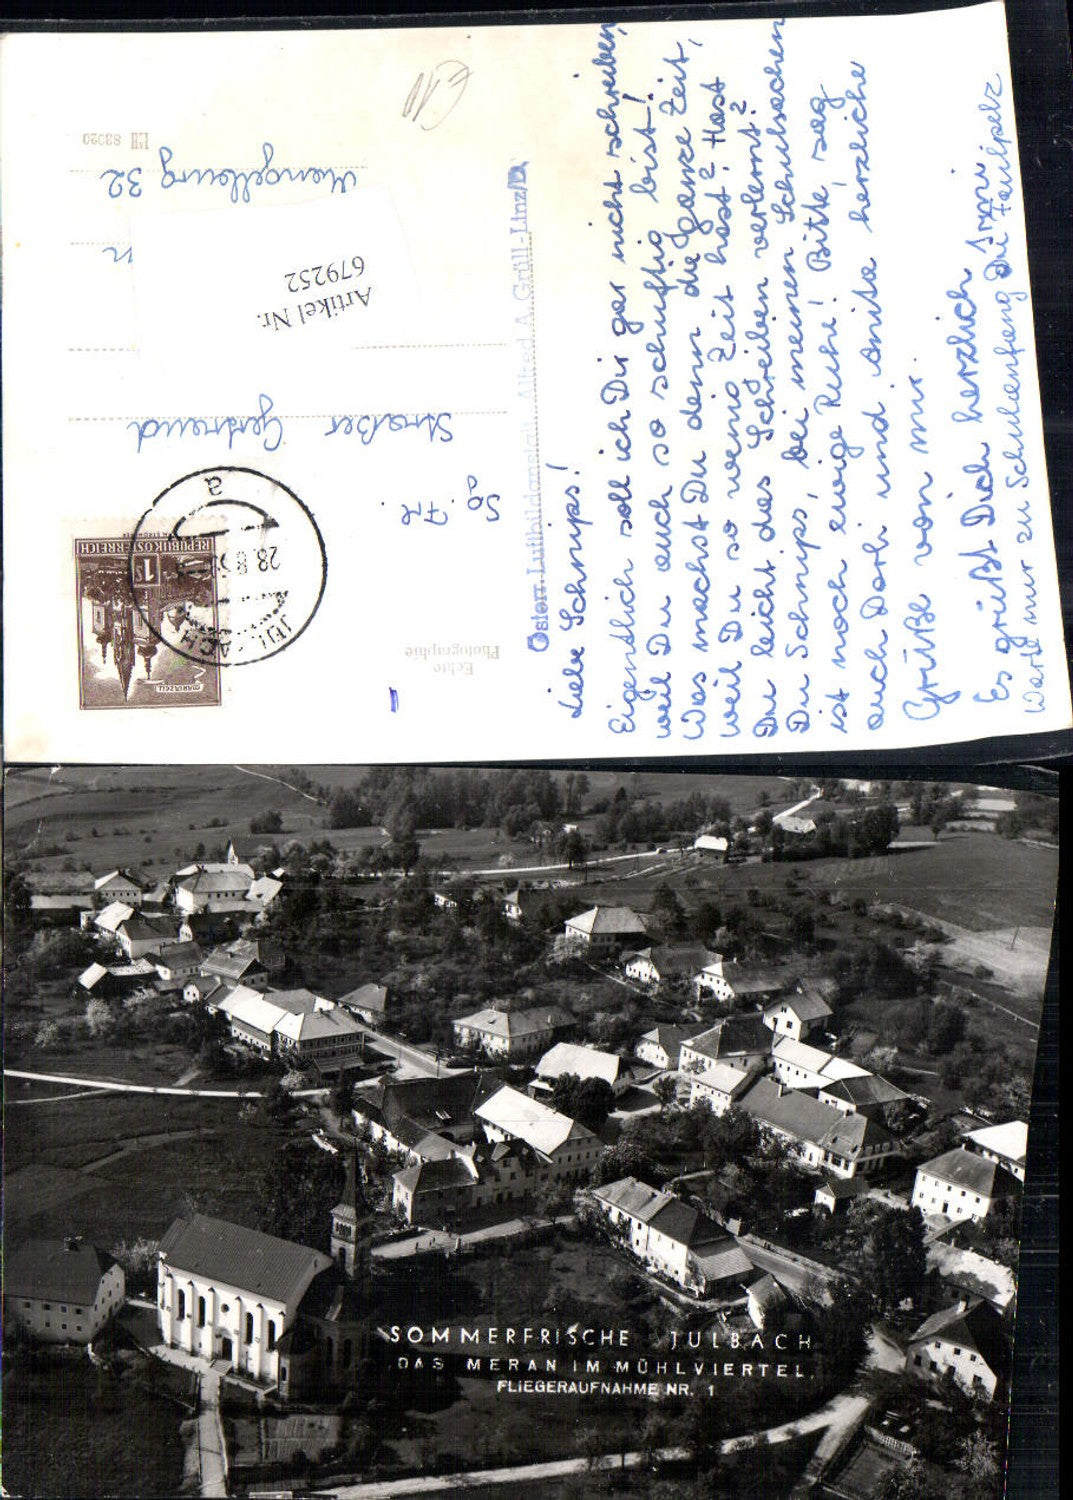 Liebe Schnips!
Eigentlich soll ich Dir gar nicht schreiben,
weil Du auch so schuftig bist!
Was machst Du denn die ganze Zeit,
weil Du so wenig Zeit hast? Hast
Du leicht das Schreiben verlernt?
Du Schnips, bei meinen Schulsachen
ist noch ewige Ruhe! Bitte, sag
auch Dorli und Anita herzliche
Grüße von mir.
Es grüßt Dich herzlich Irmi.
Warte nur zu Schulanfang Du Faulpelz
Österr. Luftbildanstalt Alfred A. Grüll-Linz/D.
Echte
Photographie
MARIAZELL
1 S
REPUBLIK ÖSTERREICH
JULBACH
28.8.
a
Sg. Frl.
Straßer Gertraud
Artikel Nr.
679252
32
83020
€10
SOMMERFRISCHE JULBACH
DAS MERAN IM MÜHLVIERTEL
FLIEGERAUFNAHME NR. 1